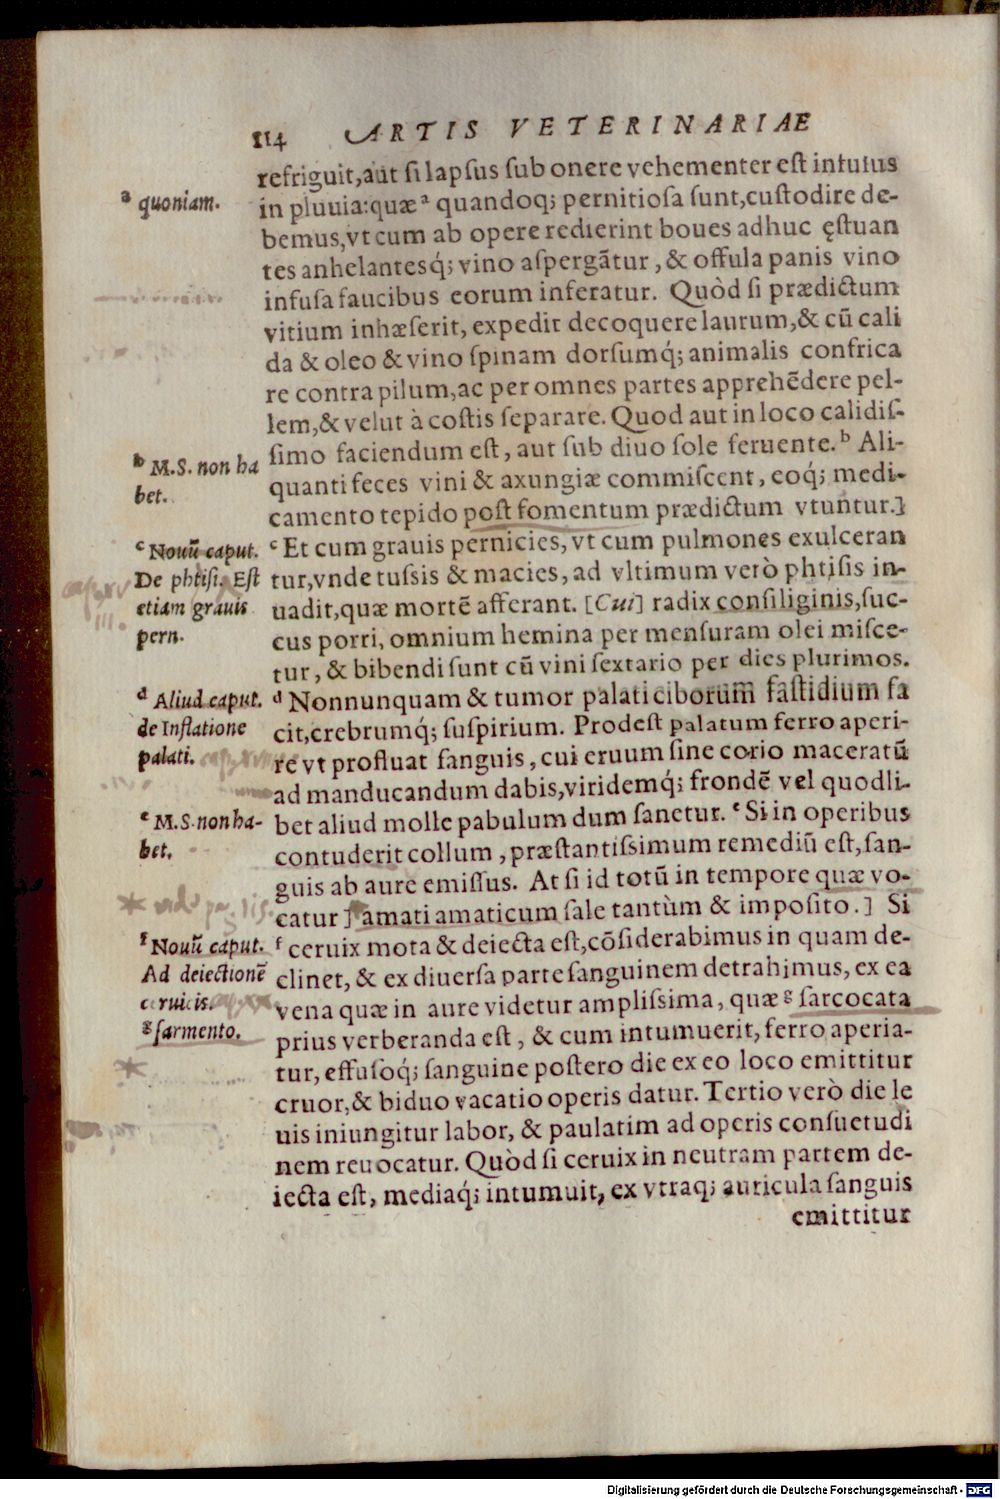 114 ARTIS VETERINARIAE
refriguit,aut si lapsus sub onere vehementer est intutus
in pluuia:quæª quandoq; pernitiosa sunt,custodire de-
bemus,vt cum ab opere redierint boues adhuc ęstuan
tes anhelantesq́; vino aspergãtur, & offula panis vino
infusa faucibus eorum inferatur. Quòd si prædictum
vitium inhæserit, expedit decoquere laurum,& cũ cali
da & oleo & vino spinam dorsumq́; animalis confrica
re contra pilum,ac per omnes partes apprehẽdere pel-
lem,& velut à costis separare. Quod aut in loco calidis-
simo faciendum est, aut sub diuo sole feruente.ᵇ Ali-
quanti feces vini & axungiæ commiscent, eoq́; medi-
camento tepido post fomentum prædictum vtuntur.]
ᶜ Et cum grauis pernicies, vt cum pulmones exulceran
tur,vnde tussis & macies, ad vltimum verò phtisis in-
uadit,quæ mortẽ afferant. [Cui] radix consiliginis,suc-
cus porri, omnium hemina per mensuram olei misce-
tur, & bibendi sunt cũ vini sextario per dies plurimos.
ᵈ Nonnunquam & tumor palati ciborum fastidium fa
cit,crebrumq́; suspirium. Prodest palatum ferro aperi-
re vt profluat sanguis, cui eruum sine corio maceratũ
ad manducandum dabis,viridemq́; frondẽ vel quodli-
bet aliud molle pabulum dum sanetur. ᵉ Si in operibus
contuderit collum, præstantissimum remediũ est, san-
guis ab aure emissus. At si id totũ in tempore quæ vo-
catur] amati amaticum sale tantùm & imposito.] Si
ᶠ ceruix mota & deiecta est,cõsiderabimus in quam de-
clinet, & ex diuersa parte sanguinem detrahimus, ex ea
vena quæ in aure videtur amplissima, quæ ᵍ sarcocata
prius verberanda est, & cum intumuerit, ferro aperia-
tur, effusoq́; sanguine postero die ex eo loco emittitur
cruor,& biduo vacatio operis datur. Tertio verò die le
uis iniungitur labor, & paulatim ad operis consuetudi
nem reuocatur. Quòd si ceruix in neutram partem de-
iecta est, mediaq́; intumuit, ex vtraq; auricula sanguis
emittitur
ª quoniam.
ᵇ M.S. non ha
bet.
ᶜ Nouũ caput.
De phtisi. Est
etiam grauis
pern.
ᵈ Aliud caput.
de Inflatione
palati.
ᵉ M.S. non ha-
bet.
ᶠ Nouũ caput.
Ad deiectionẽ
ceruicis.
ᵍ sarmento.
Digitalisierung gefördert durch die Deutsche Forschungsgemeinschaft - DFG